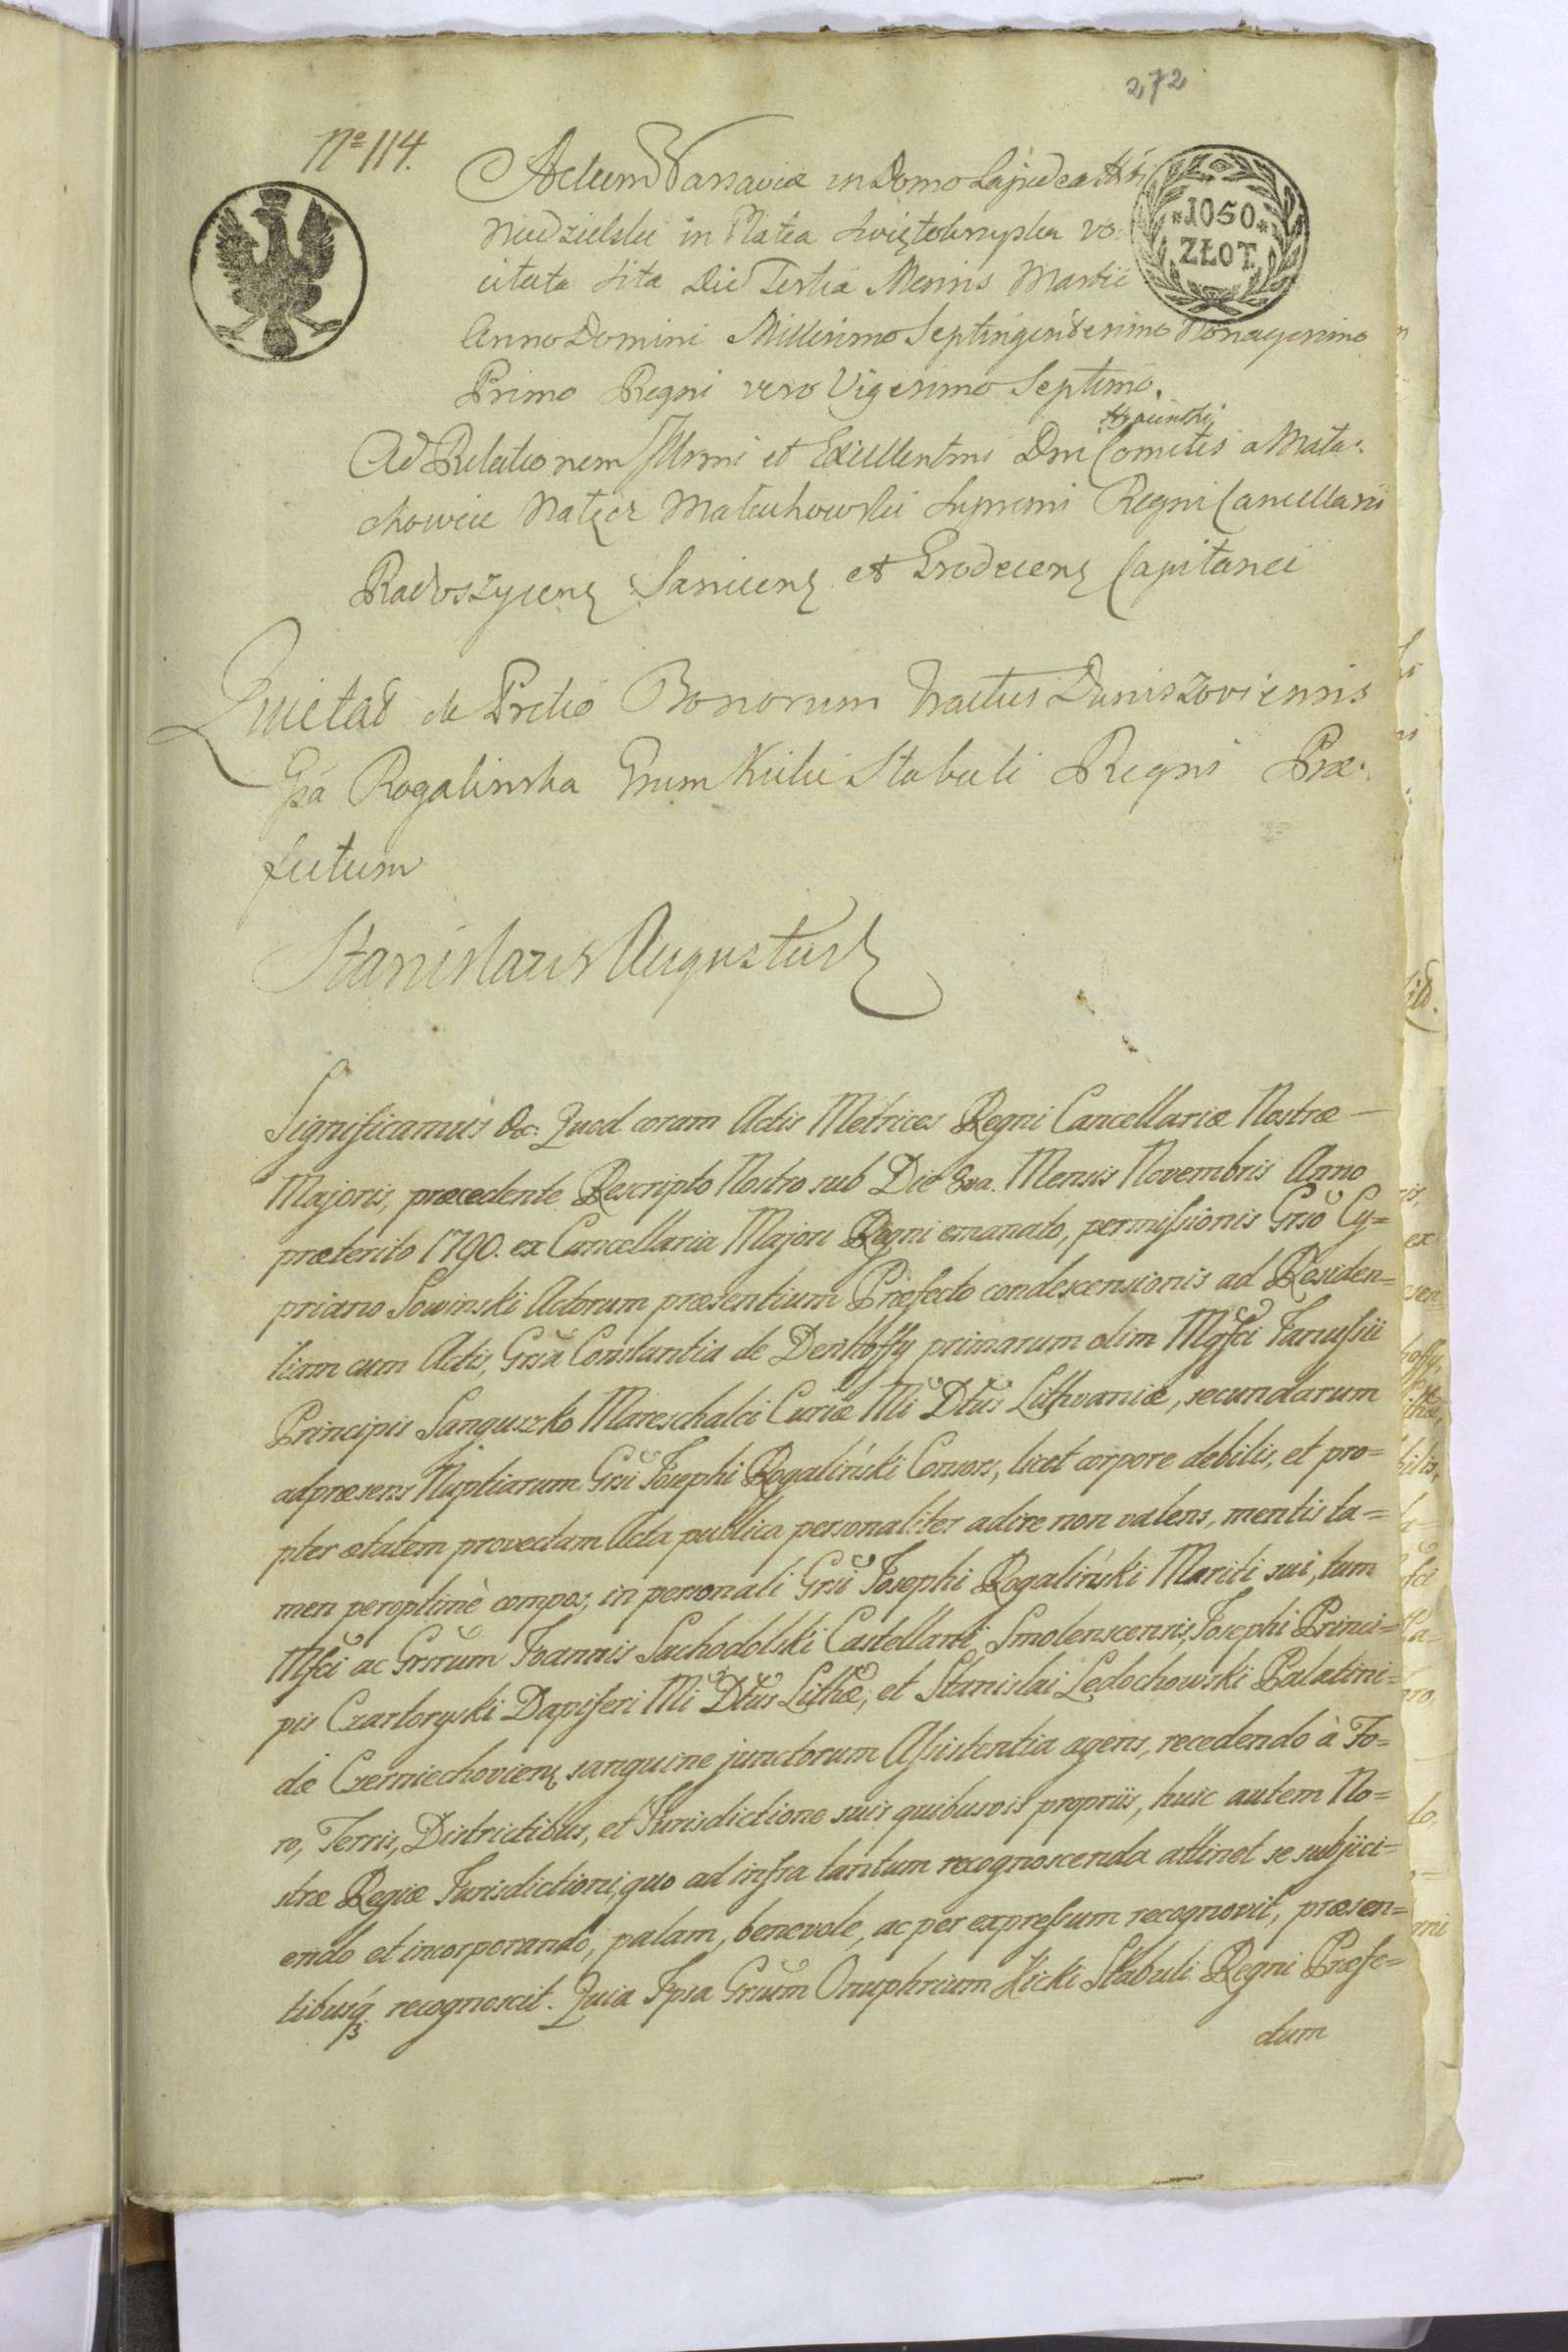 272
Nº 114.
Actum Varsaviæ in Domo Lapidea
Niedzielski in Platea Swiętokrzyska vo
citata sita Die Tertia Mensis Martii
Anno Domini Millesimo Septingentesimo Nonagesimo
Primo Regni vero Vigesimo Septimo.
*1050*
ZŁOT.
Hyacinthi
Ad Relationem Illmi et Excellentmi Dni Comitis a Mała-
chowice Nałęcz Małachowski Supremi Regni Cancellarii
Radoszycens Sanicens et Grodecens Capitanei
Quietat de Pretio Bonorum Tractus Daniszoviensis
Gsa Rogalinska Grum Kicki Stabuli Regni Præ-
fectum
Stanislaus Augustus
Significamus &c: Quod coram Actis Metrices Regni Cancellariæ Nostræ —
Majoris, præcedente Rescripto Nostro sub Die 8va. Mensis Novembris Anno
præterito 1790. ex Cancellaria Majori Regni emanato, permissionis Grso Cy=
priano Sowinski Actorum præsentium Præfecto condescensionis ad Residen=
tiam cum Actis, Grsa Constantia de Denhoffy primarum olim Mgfci Janussii
Principis Sanguszko Mareschalci Curiæ Mi Dtus Lithvaniæ, secundarum
adpræsens Nuptiarum Grsi Josephi Rogaliński Consors, licet corpore debilis, et pro=
pter ætatem provectam Acta publica personaliter adire non valens, mentis ta=
men peroptimè compos, in personali Grsi Josephi Rogaliński Mariti sui, tum
Mfci ac Grsrum Joannis Suchodolski Castellani Smolenscensis, Josephi Princi=
pis Czartoryski Dapiferi Mi Dtus Lithæ, et Stanislai Ledochowski Palatini=
dæ Czerniechoviens sanguine junctorum Assistentia agens, recedendo à Fo=
ro, Terris, Districtibus, et Jurisdictione suis quibusvis propriis, huic autem No=
stræ Regiæ Jurisdictioni, quo ad infra tantum recognoscenda attinet se subjici=
endo et incorporando, palam, benevole, ac per expressum recognovit, præsen=
tibusq recognoscit. Quia Ipsa Grsum Onuphrium Kicki Stabuli Regni Præfe=
ctum